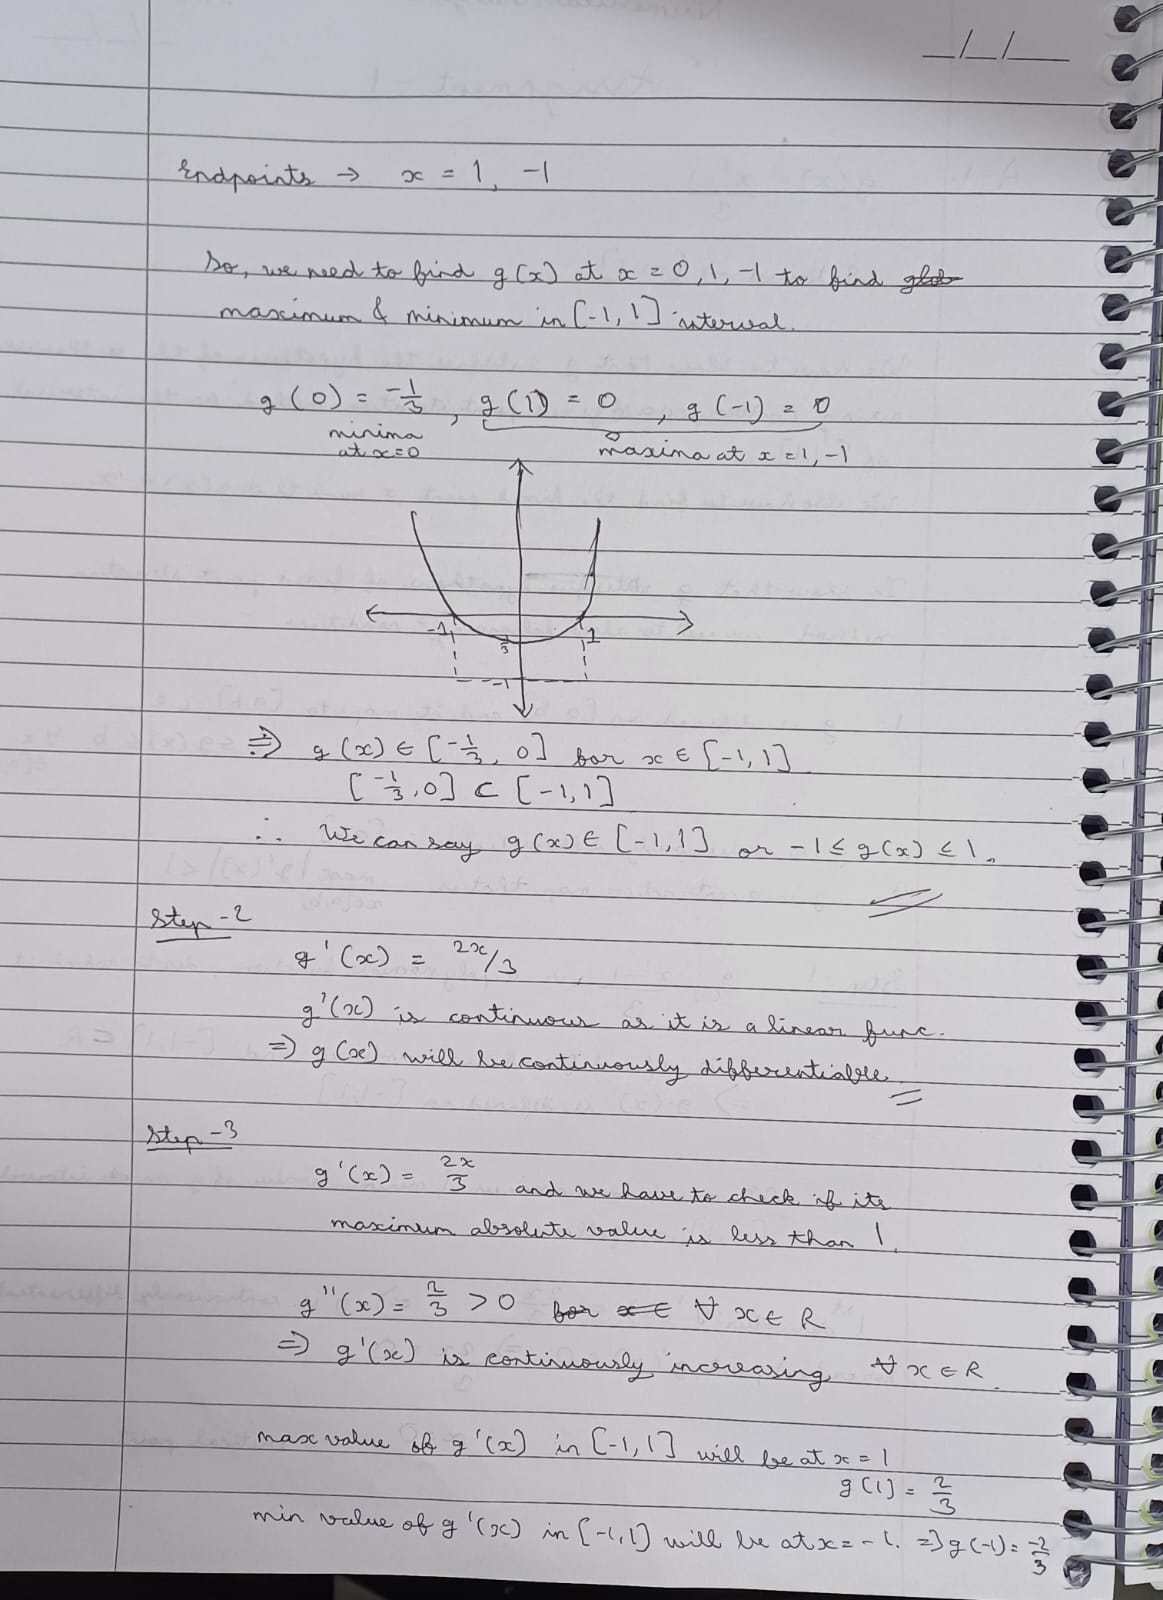 _/_/_
Endpoints → x = 1, -1
So, we need to find g(x) at x = 0, 1, -1 to find glob
maximum & minimum in [-1, 1] interval.
g(0) = -1/3, g(1) = 0, g(-1) = 0
minima
at x=0
maxima at x = 1, -1
-1 1
1/3
-1
⇒ g(x) ∈ [-1/3, 0] for x ∈ [-1, 1]
[-1/3, 0] ⊂ [-1, 1]
∴ We can say g(x) ∈ [-1, 1] or -1 ≤ g(x) ≤ 1.
Step -2
g'(x) = 2x/3
g'(x) is continuous as it is a linear func.
⇒ g(x) will be continuously differentiable.
Step -3
g'(x) = 2x/3 and we have to check if its
maximum absolute value is less than 1.
g''(x) = 2/3 > 0 for x ∈ ∀ x ∈ R
⇒ g'(x) is continuously increasing ∀ x ∈ R.
max value of g'(x) in [-1, 1] will be at x = 1
g(1) = 2/3
min value of g'(x) in [-1, 1] will be at x = -1. ⇒ g(-1) = -2/3